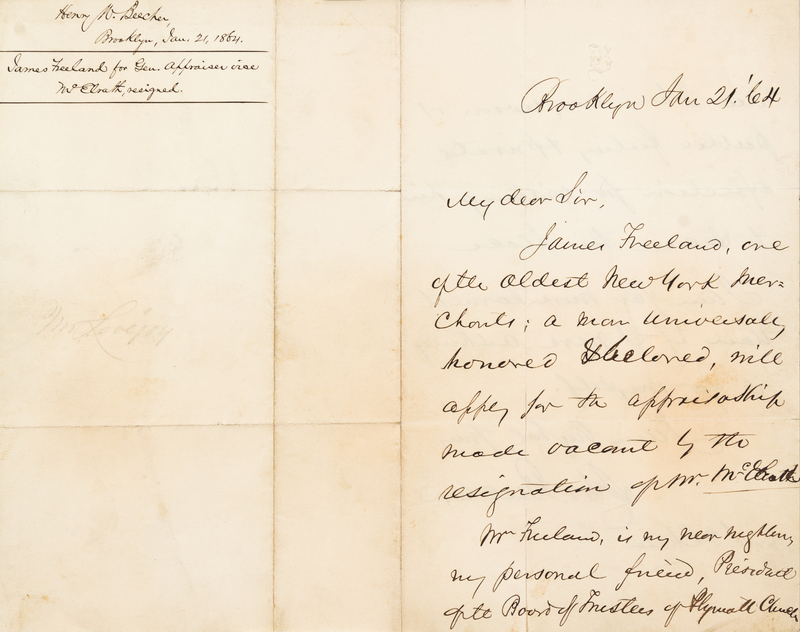 Henry W. Beecher,
Brooklyn, Jan. 21, 1864.
James Freeland for Gen. Appraiser vice
Mc Elrath, resigned.
Mr Lovejoy
Brooklyn Jan 21. '64
My dear Sir,
James Freeland, one
of the oldest New York Mer=
chants; a man universally
honored & beloved, will
apply for the appraisership
made vacant by the
resignation of Mr. McElrath
Mr Freeland, is my near neighbor,
my personal friend, President
of the Board of Trustees of Plymouth Church